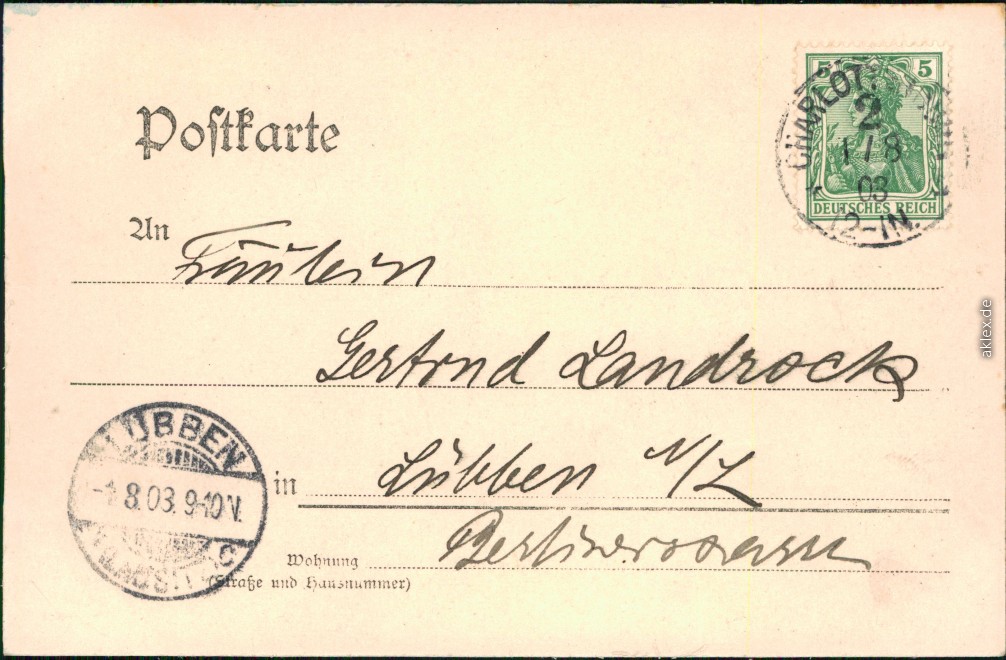 Postkarte
5 5
CHARLOT
2
1/8
03
12-1N.
DEUTSCHES REICH
An Fräulein
Gertrud Landrock
in Lübben N/L
LÜBBEN
-1.8.03. 9-10V.
Wohnung
(Straße und Hausnummer)
aklex.de